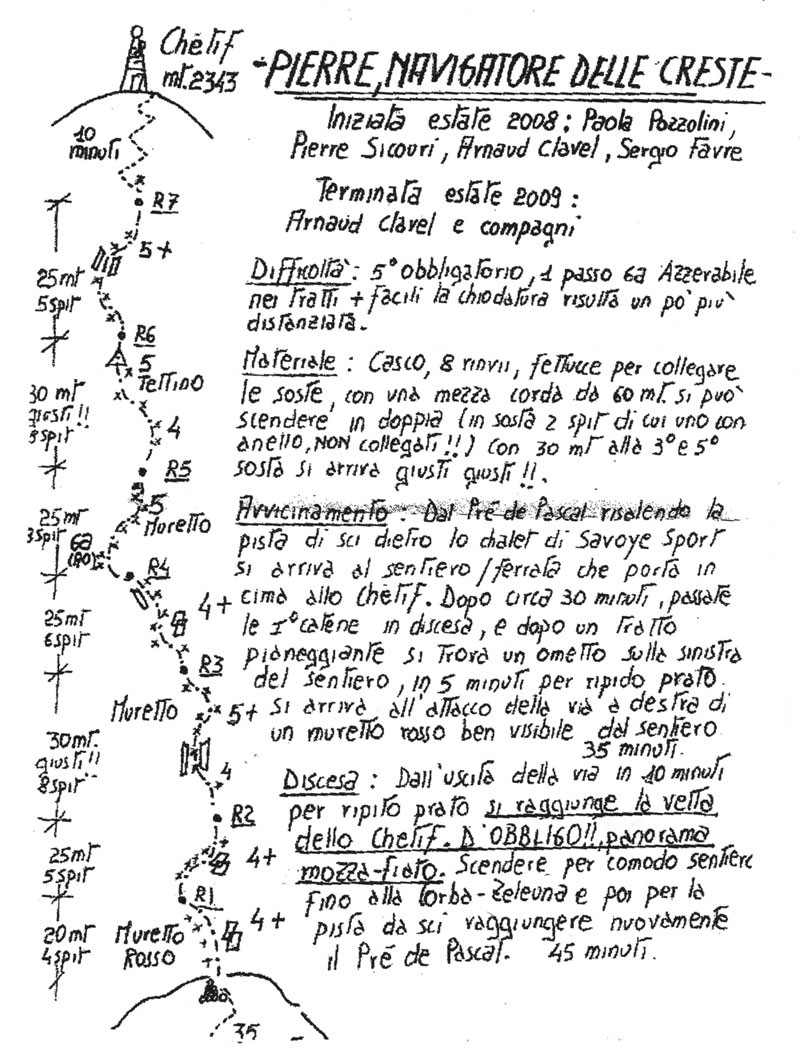 Chétif
mt.2343
-PIERRE, NAVIGATORE DELLE CRESTE-
Iniziata estate 2008: Paola Pozzolini,
Pierre Sicouri, Arnaud Clavel, Sergio Favre
Terminata estate 2009:
Arnaud Clavel e compagni
Difficoltà: 5° obbligatorio, 1 passo 6a Azzerabile
nei tratti + facili la chiodatura risulta un pò più
distanziata.
Materiale: Casco, 8 rinvii, fettucce per collegare
le soste, con una mezza corda da 60 mt. si può
scendere in doppia (in sosta 2 spit di cui uno con
anello, NON collegati!!) Con 30 mt alla 3° e 5°
sosta si arriva giusti giusti!!.
Avvicinamento: Dal Pré de Pascal risalendo la
pista di sci dietro lo chalet di Savoye Sport
si arriva al sentiero/ferrata che porta in
cima allo Chétif. Dopo circa 30 minuti, passate
le 1° catene in discesa, e dopo un tratto
pianeggiante si trova un ometto sulla sinistra
del sentiero, in 5 minuti per ripido prato.
si arriva all'attacco della via a destra di
un muretto rosso ben visibile dal sentiero
35 minuti.
Discesa: Dall'uscita della via in 10 minuti
per ripito prato si raggiunge la vetta
dello Chetif. D'OBBLIGO!!, panorama
mozza-fiato. Scendere per comodo sentierc
fino alla Corba-Zeleuna e poi per la
pista da sci raggiungere nuovamente
il Pré de Pascal. 45 minuti.
10
minuti
R7
5+
25mt
5spit
R6
5
Tettino
30 mt
giusti!!
8spit
4
R5
5
Muretto
25mt
3spit
6a
(A0)
R4
4+
25mt
6spit
R3
Muretto
5+
30mt.
giusti!!
8spit
4
R2
25mt
5spit
4+
R1
4+
20mt
4spit
Muretto
Rosso
35